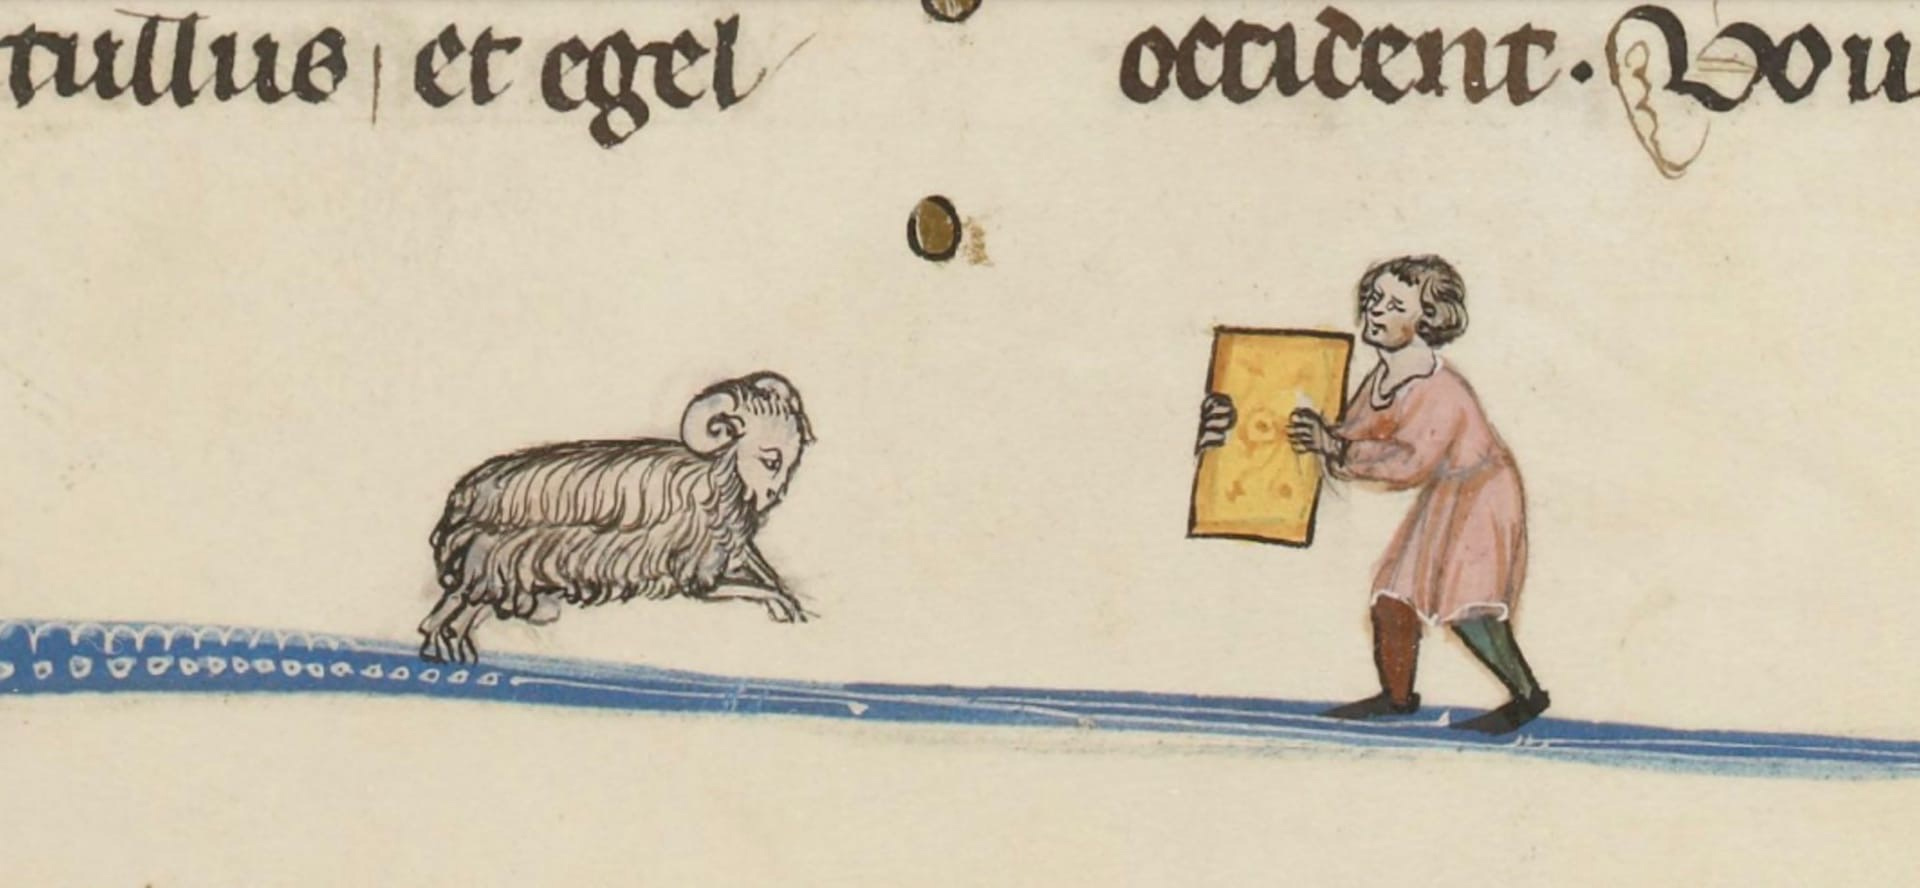 tullus et egel
occident. Vou